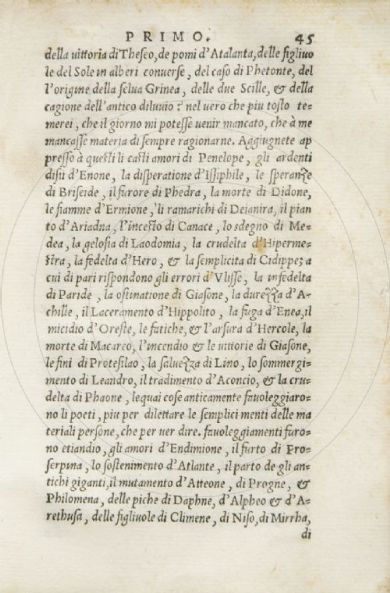 PRIMO. 45
della vittoria di Theseo, de pomi d'Atalanta, delle figliuo
le del Sole in alberi conuerse, del caso di Phetonte, del
l'origine della selua Grinea, delle due Scille, & della
cagione dell'antico diluuio? nel uero che piu tosto te-
merei, che il giorno mi potesse uenir mancato, che à me
mancasse materia di sempre ragionarne. Aggiugnete ap
presso à questi li casti amori di Penelope, gli ardenti
disii d'Enone, la disperatione d'Issiphile, le speranze
di Briseide, il furore di Phedra, la morte di Didone,
le fiamme d'Ermione, li ramarichi di Deianira, il pian
to d'Ariadna, l'incesto di Canace, lo sdegno di Me-
dea, la gelosia di Laodomia, la crudelta d'Hiperme-
stra, la fedelta d'Hero, & la semplicita di Cidippe; a
cui di pari rispondono gli errori d'Vlisse, la infedelta
di Paride, la ostinatione di Giasone, la durezza d'A-
chille, il Laceramento d'Hippolito, la fuga d'Enea, il
micidio d'Oreste, le fatiche, & l'arsura d'Hercole, la
morte di Macareo, l'incendio & le uittorie di Giasone,
le fini di Protesilao, la saluezza di Lino, lo sommergi-
mento di Leandro, il tradimento d'Aconcio, & la cru-
delta di Phaone, lequai cose anticamente fauoleggiaro-
no li poeti, piu per dilettare le semplici menti delle ma
teriali persone, che per uer dire. fauoleggiamenti furo-
no etiandio, gli amori d'Endimione, il furto di Pro-
serpina, lo sostenimento d'Atlante, il parto de gli an-
tichi giganti, il mutamento d'Atteone, di Progne, &
Philomena, delle piche di Daphne, d'Alpheo & d'A-
rethusa, delle figliuole di Climene, di Niso, di Mirrha,
di